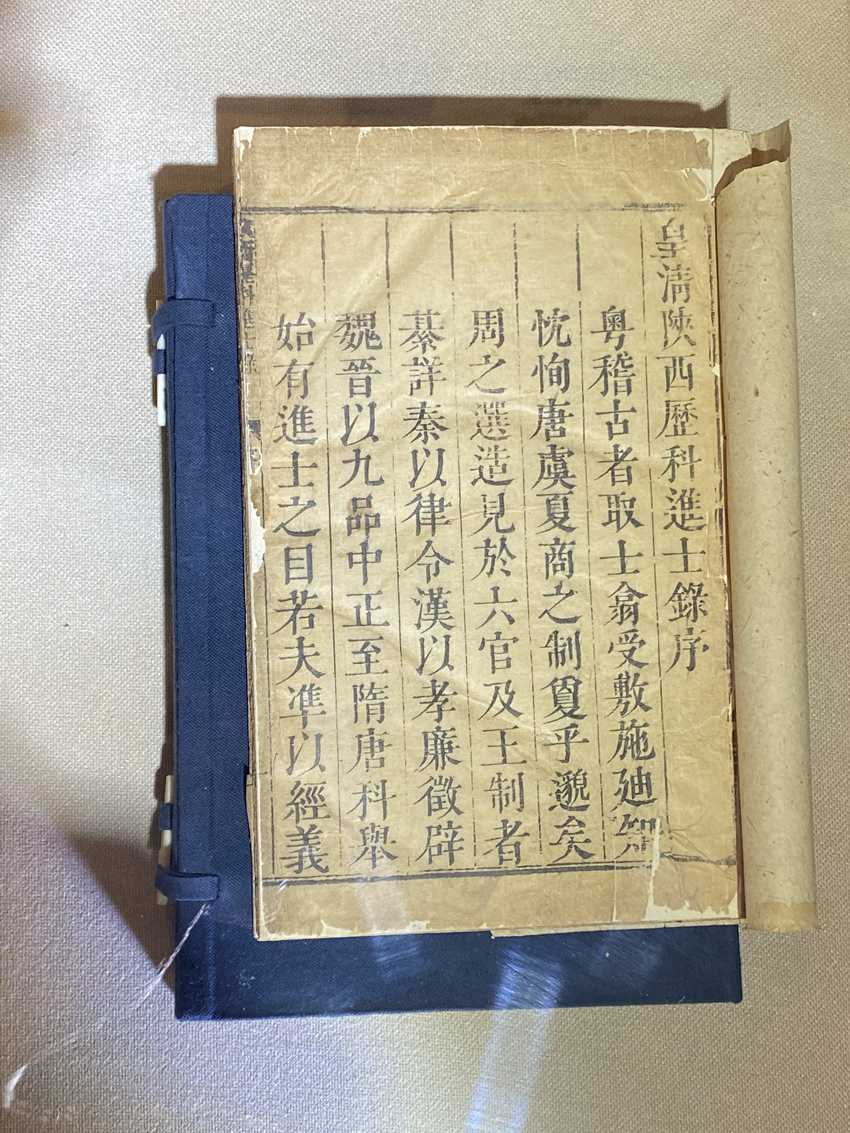 皇清陝西歷科進士錄序
粵稽古者取士翕受敷施廸知
忱恂唐虞夏商之制夐乎邈矣
周之選造見於六官及王制者
綦詳秦以律令漢以孝廉徵辟
魏晉以九品中正至隋唐科舉
始有進士之目若夫凖以經義